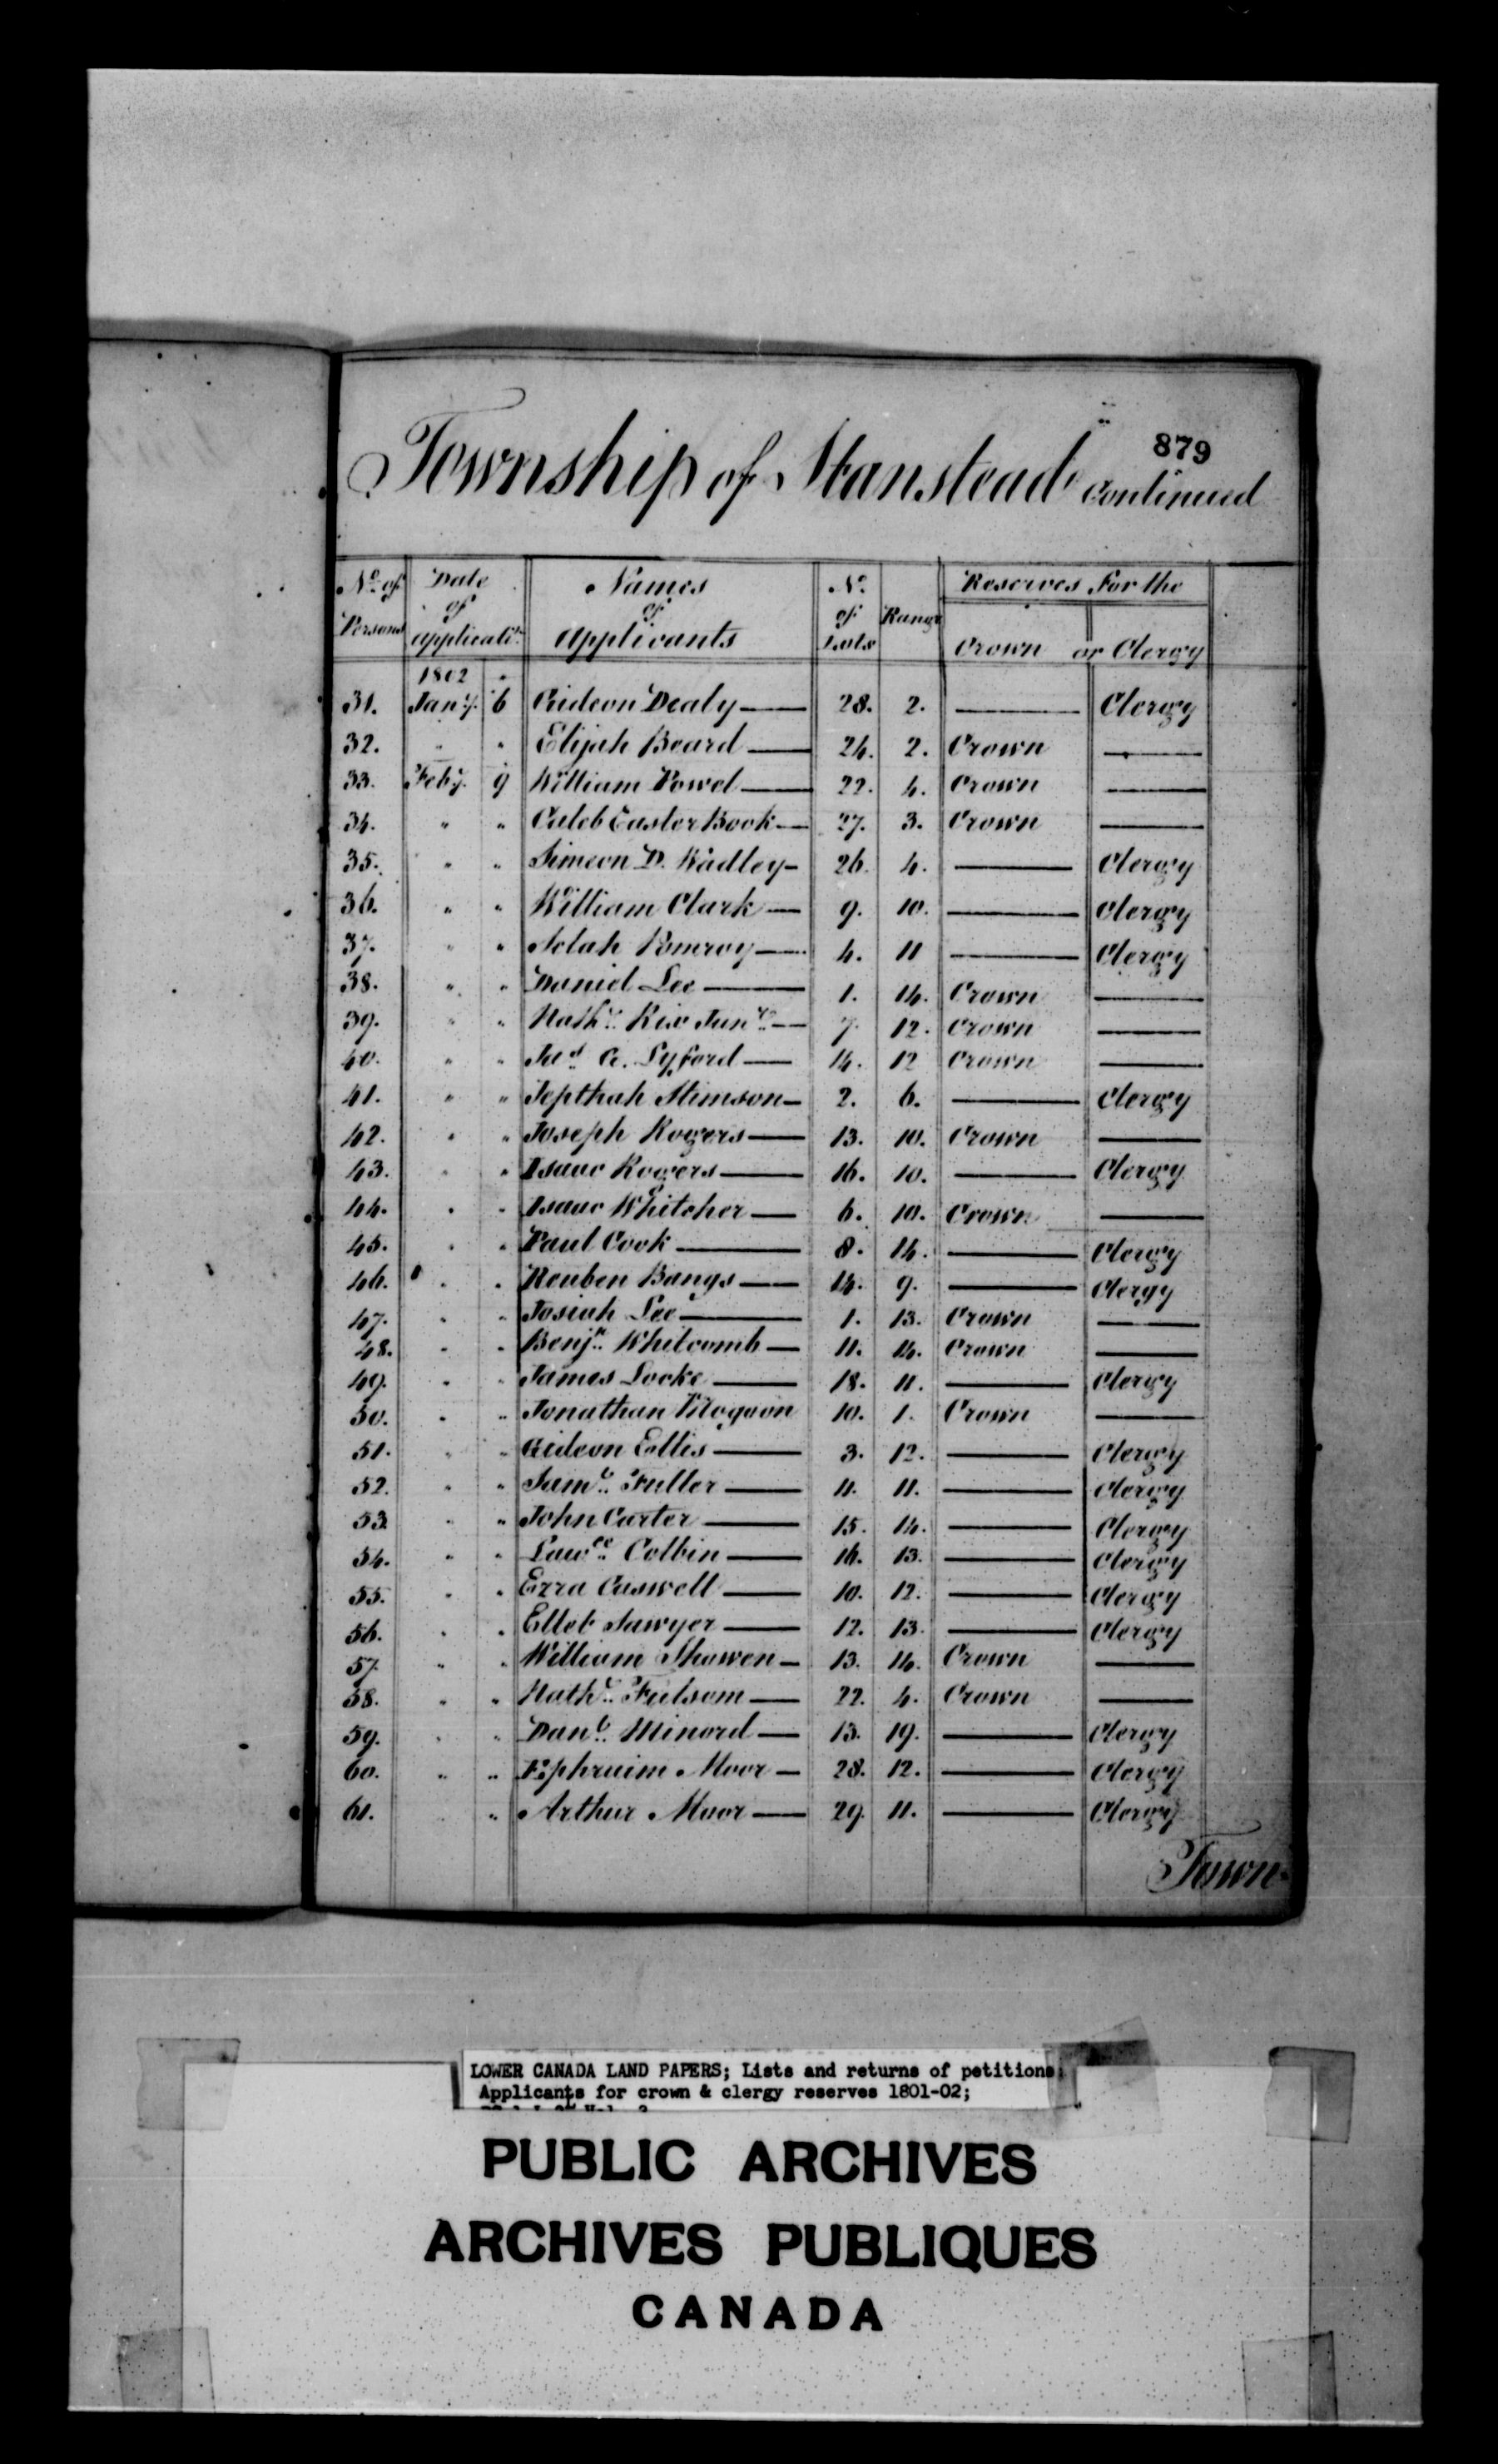 879
Township of Stanstead continued
No. of Persons Date of applicatn. Names of applicants No. of Lots Range Reserves For the Crown or Clergy
1802
31. Jany. 6 Gideon Dealy — 28. 2. — Clergy
32. " " Elijah Beard — 24. 2. Crown —
33. Feby. 9 William Powel — 22. 4. Crown —
34. " " Caleb Easter Book — 27. 3. Crown —
35. " " Simeon D. Wadley — 26. 4. — Clergy
36. " " William Clark — 9. 10. — Clergy
37. " " Selah Pomroy — 4. 11 — Clergy
38. " " Daniel Lee — 1. 14. Crown —
39. " " Nathl. Rix Junr. — 7. 12. Crown —
40. " " G. Lyford — 14. 12 Crown —
41. " " Jepthah Stimson — 2. 6. — Clergy
42. " " Joseph Rogers — 13. 10. Crown —
43. " " Isaac Rogers — 16. 10. — Clergy
44. " " Isaac Whitcher — 6. 10. Crown —
45. " " Paul Cook — 8. 14. — Clergy
46. " " Reuben Bangs — 14. 9. — Clergy
47. " " Josiah Lee — 1. 13. Crown —
48. " " Benjn. Whitcomb — 11. 14. Crown —
49. " " James Locke — 18. 11. — Clergy
50. " " Jonathan Magoon 10. 1. Crown —
51. " " Gideon Ellis — 3. 12. — Clergy
52. " " Saml. Fuller — 11. 11. — Clergy
53. " " John Carter — 15. 14. — Clergy
54. " " Lawce. Colbin — 16. 13. — Clergy
55. " " Ezra Caswell — 10. 12. — Clergy
56. " " Elleb Sawyer — 12. 13. — Clergy
57. " " William Shawen — 13. 14. Crown —
58. " " Nathl. Fulsom — 22. 4. Crown —
59. " " Danl. Minord — 13. 19. — Clergy
60. " " Ephraim Moor — 28. 12. — Clergy
61. " " Arthur Moor — 29. 11. — Clergy
Town-
LOWER CANADA LAND PAPERS; Lists and returns of petitions;
Applicants for crown & clergy reserves 1801-02;
PUBLIC ARCHIVES
ARCHIVES PUBLIQUES
CANADA